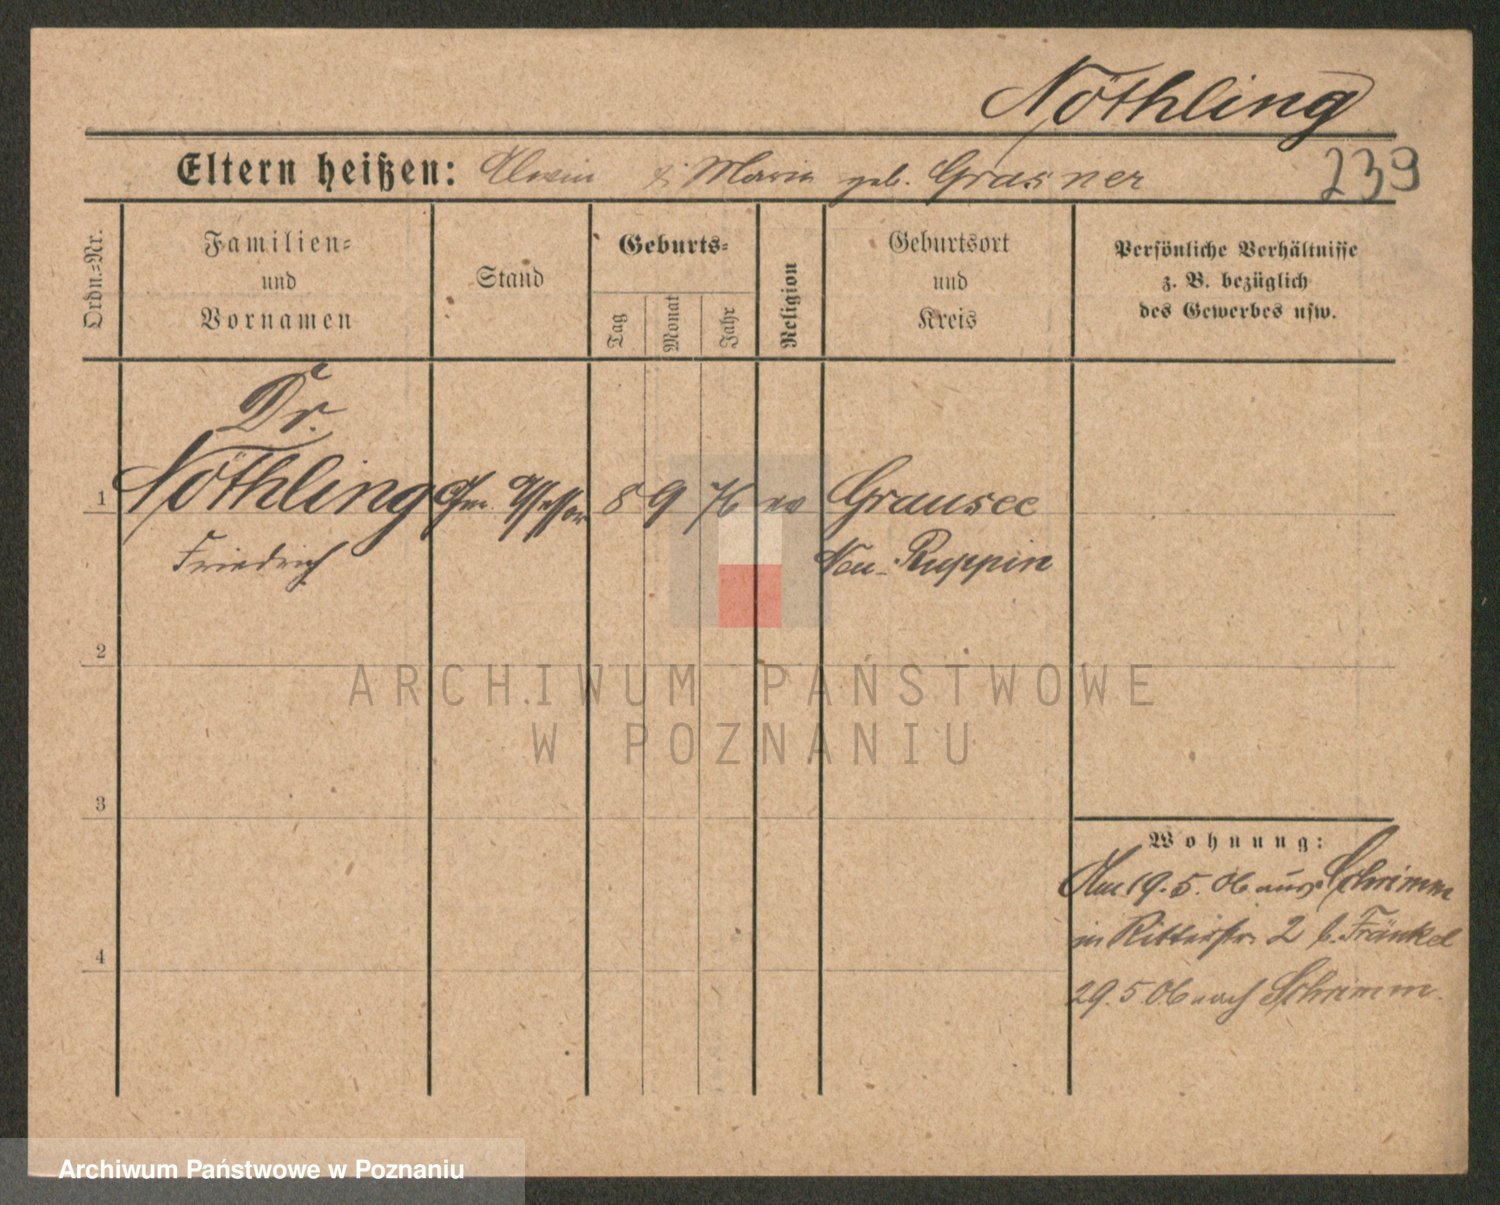 Nöthling
Eltern heißen: Alwin & Maria geb. Grasner
239
Ordn.-Nr.
Familien-
und
Vornamen
Stand
Geburts-
Tag
Monat
Jahr
Religion
Geburtsort
und
Kreis
Persönliche Verhältnisse
z. B. bezüglich
des Gewerbes usw.
Dr.
1 Nöthling Assessor 8 9 76 ev Gransee
Friedrich Neu-Ruppin
2
3
4
Wohnung:
Am 19.5.06 aus Schrimm
in Ritterstr. 2 b. Fränkel
29.5.06 nach Schrimm.
ARCHIWUM PAŃSTWOWE
W POZNANIU
Archiwum Państwowe w Poznaniu